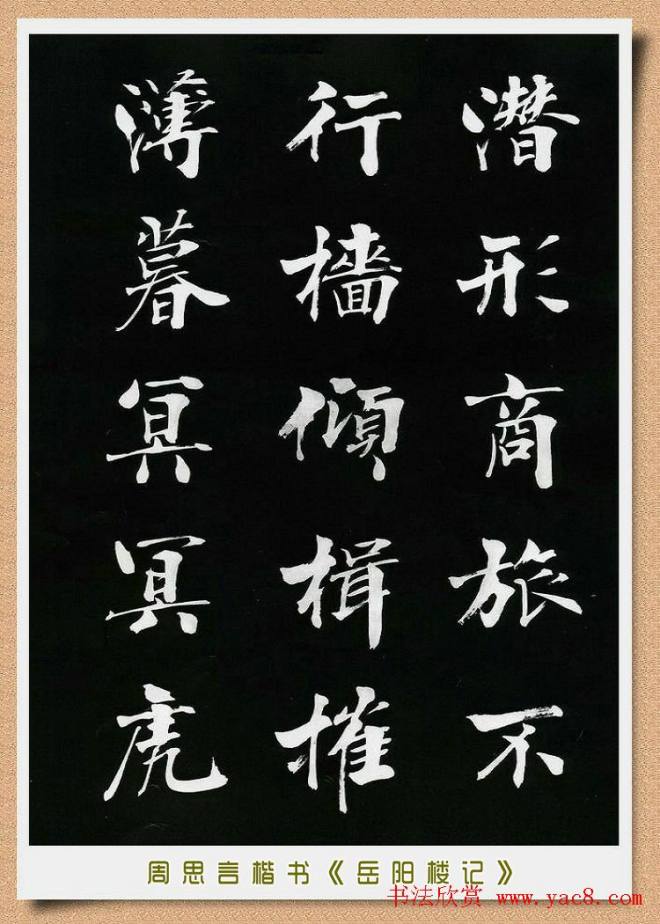 潜形商旅不
行檣傾楫摧
薄暮冥冥虎
周思言楷书《岳阳楼记》
书法欣赏 www.yac8.com